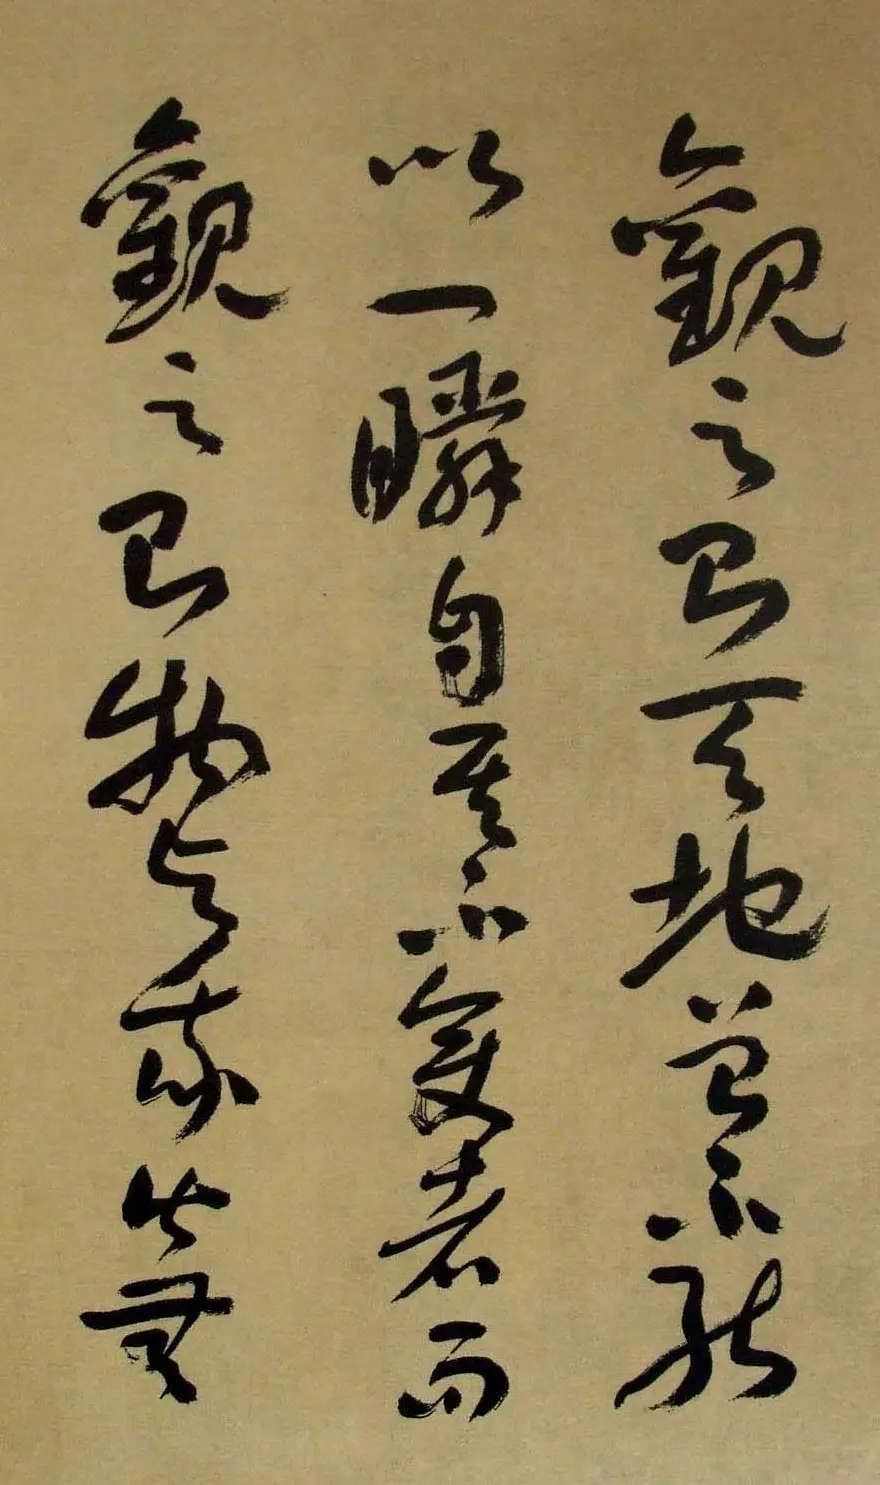 觀之則天地曾不能
以一瞬自其不變者而
觀之則物與我皆無